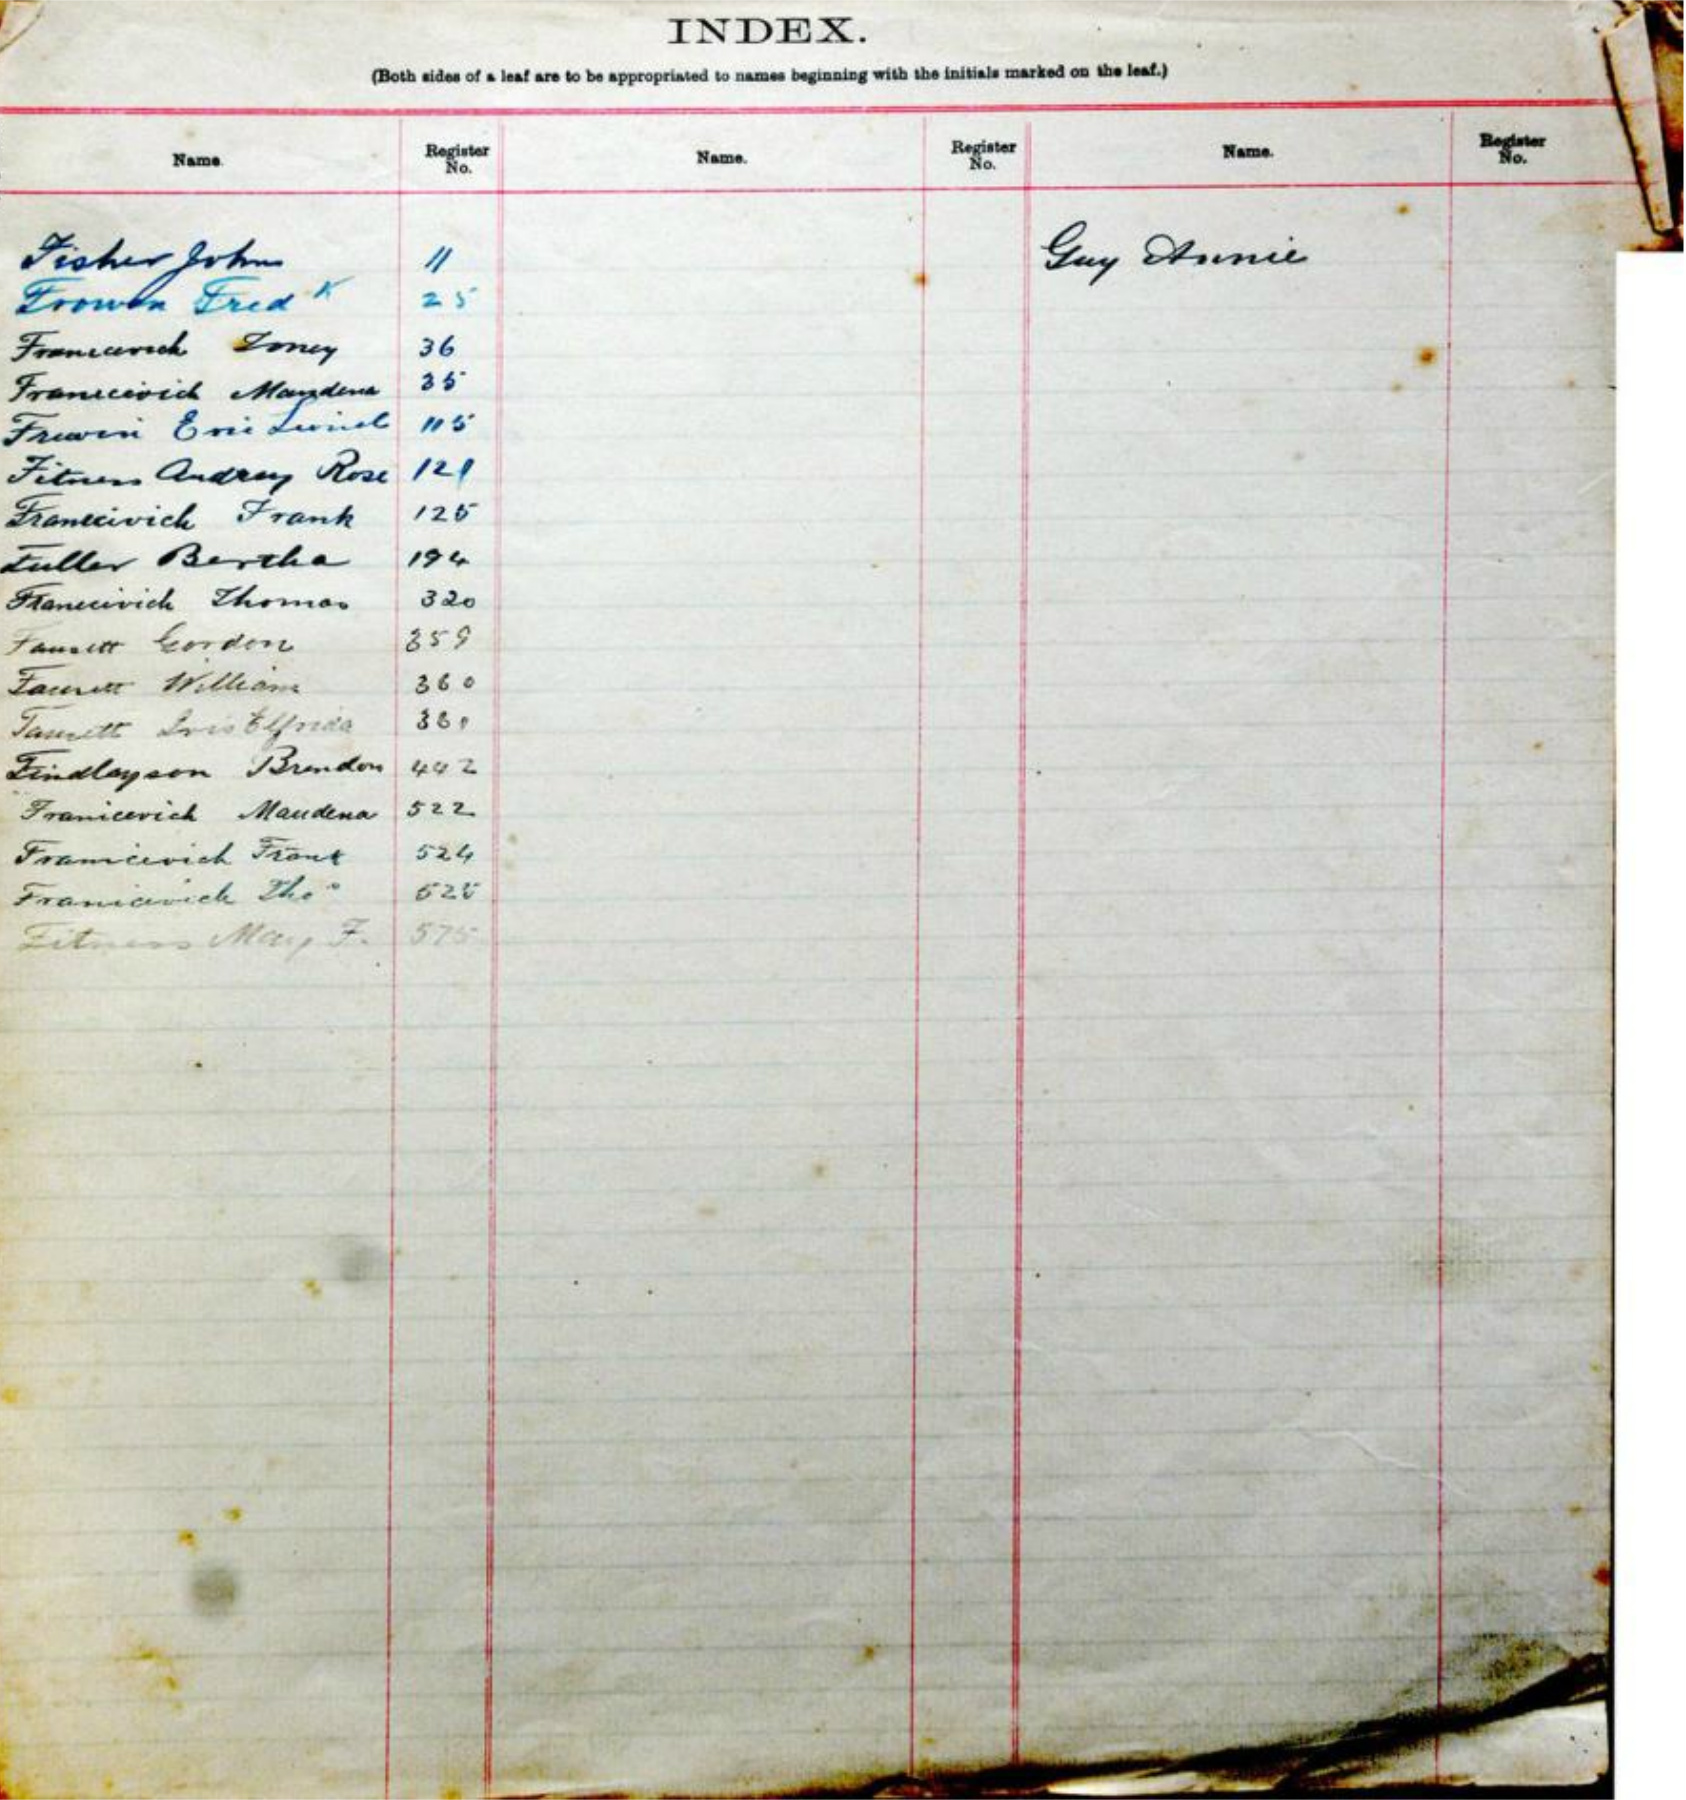 INDEX.
(Both sides of a leaf are to be appropriated to names beginning with the initials marked on the leaf.)
Name. Register No. Name. Register No. Name. Register No.
Fisher John 11 Guy Annie
Frowen Fred K 25
Franicevich Toney 36
Franicevich Maudena 35
Frewin Eric Lionel 115
Fitness Audrey Rose 121
Franicivich Frank 125
Fuller Bertha 194
Franicivich Thomas 320
Gordon 359
William 360
Iris Elfrida 380
Findlayson Brendon 442
Franicevich Maudena 522
Franicevich Frank 524
Franicevich Tho° 525
Fitness May F. 575